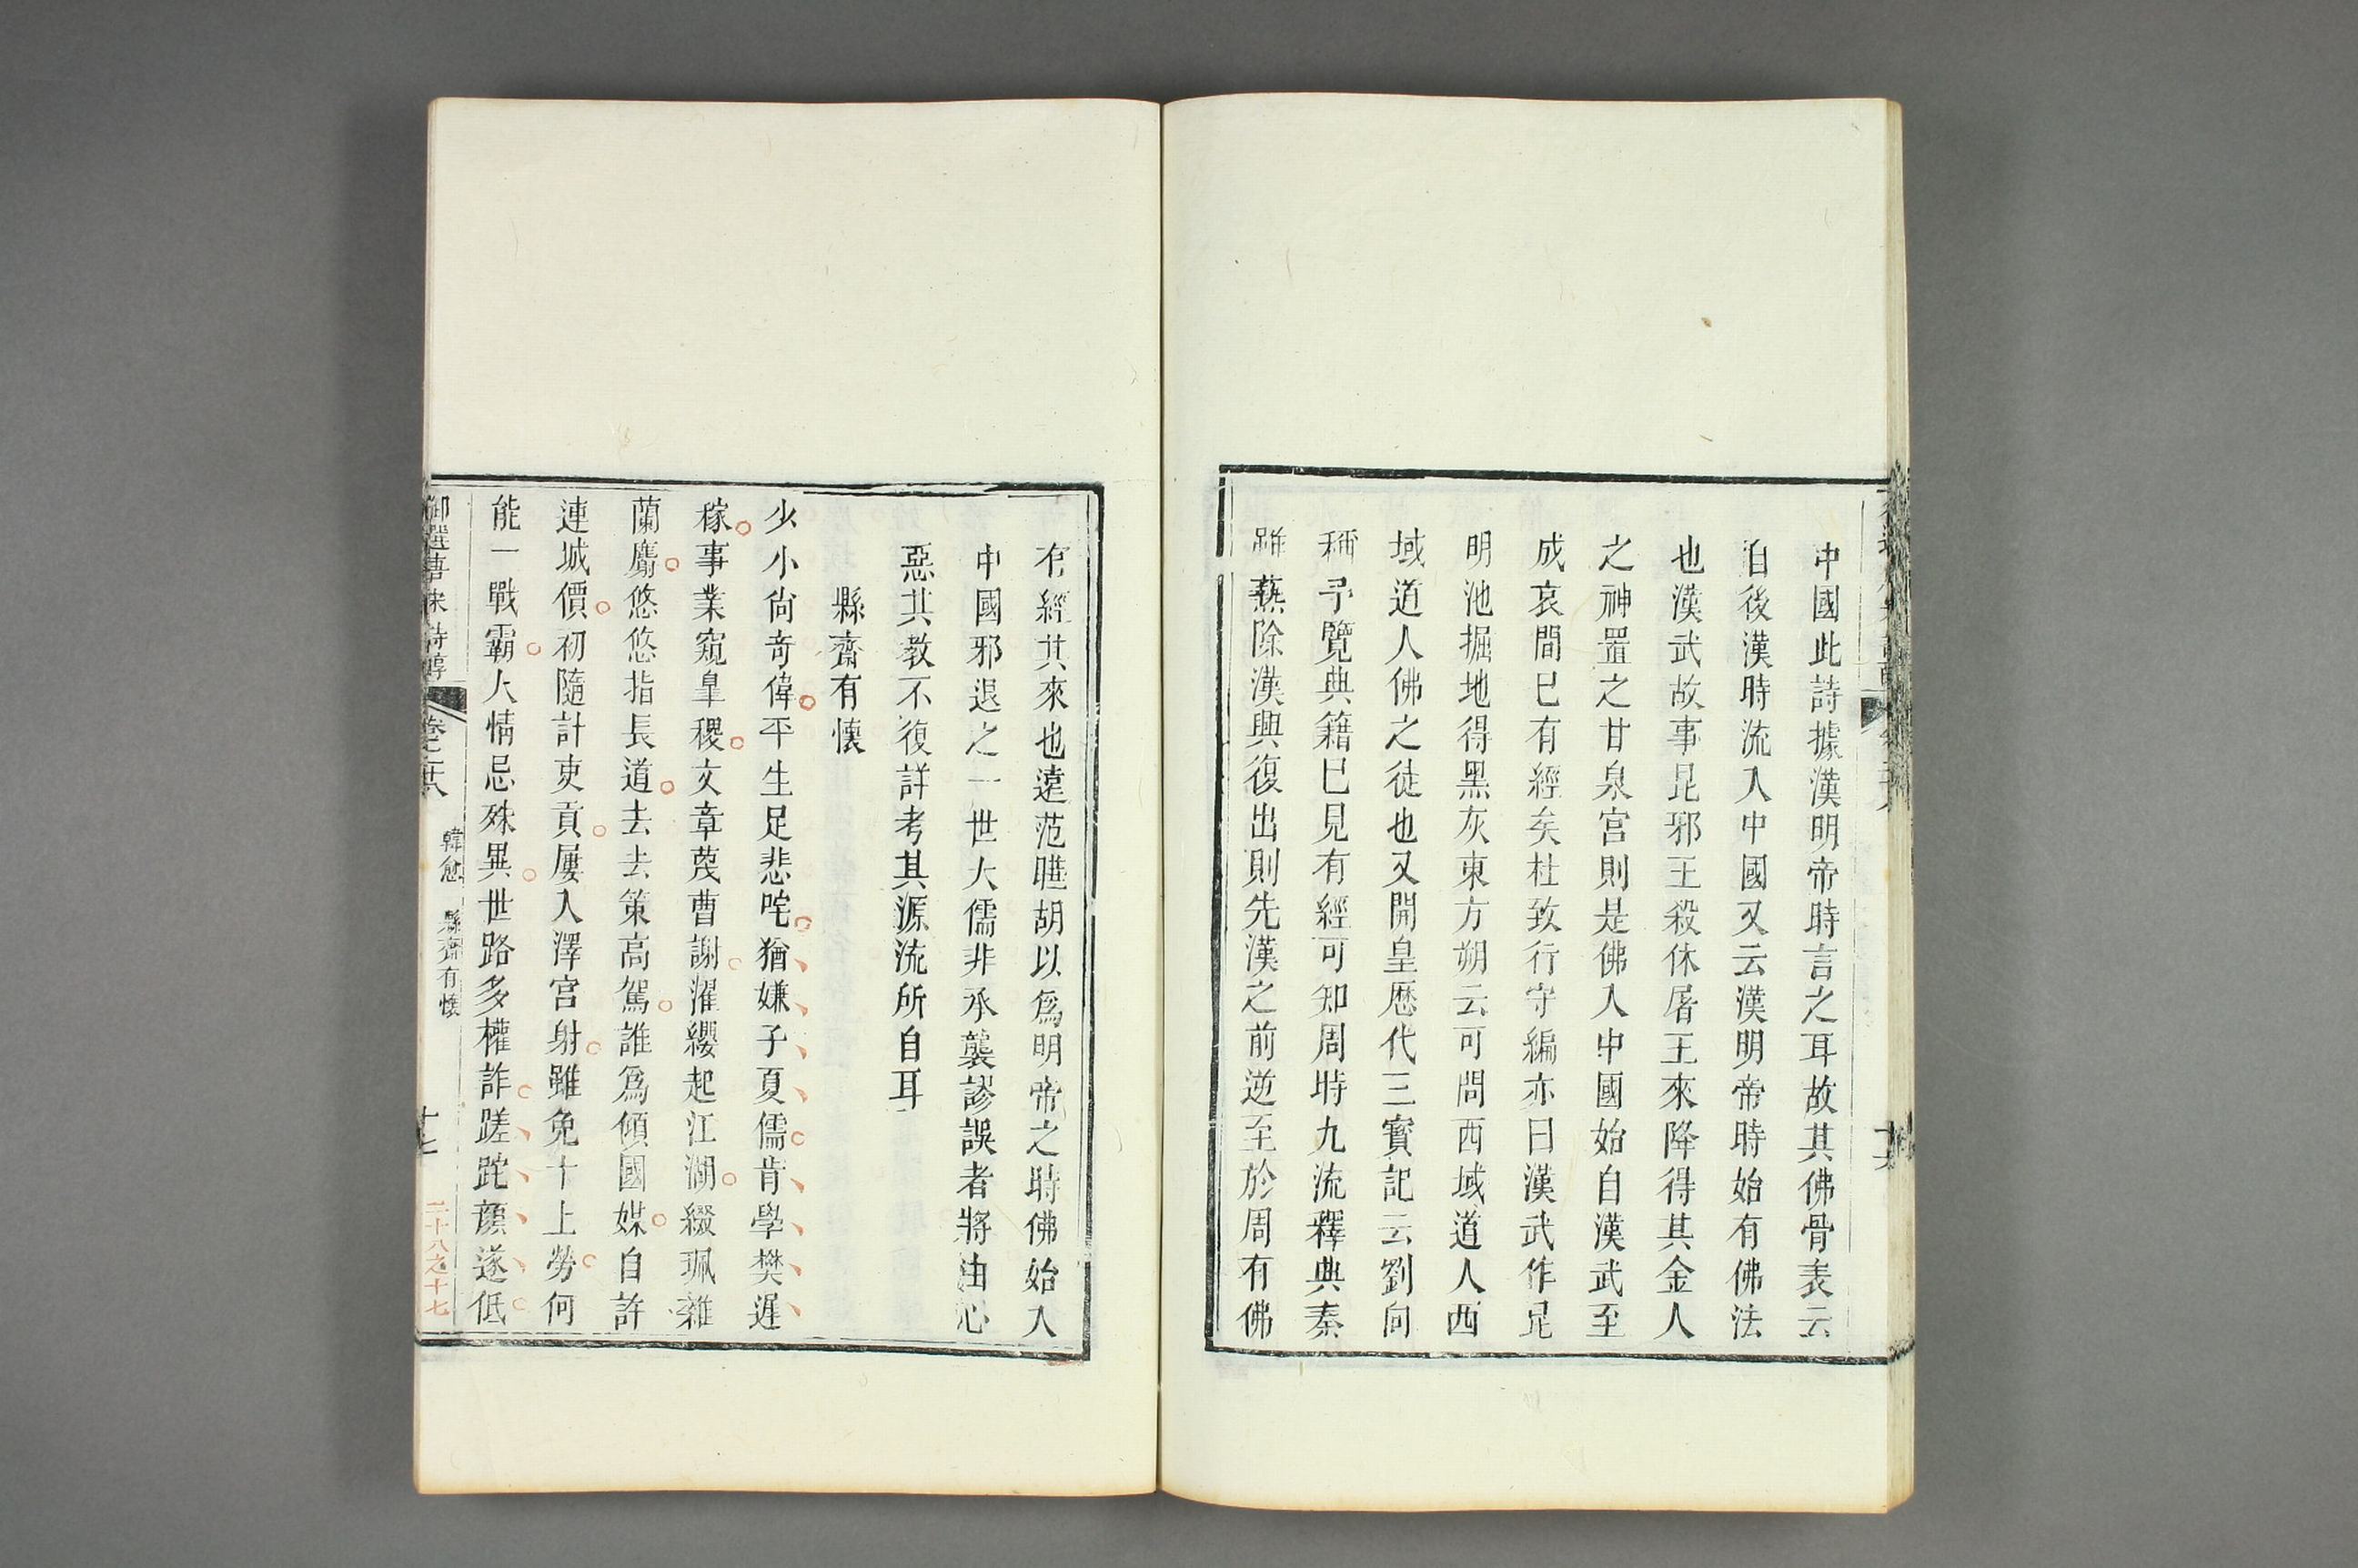 中國此詩據漢明帝時言之耳故其佛骨表云
自後漢時流入中國又云漢明帝時始有佛法
也漢武故事昆邪王殺休屠王來降得其金人
之神置之甘泉宮則是佛入中國始自漢武至
成哀間已有經矣杜致行守編亦曰漢武作昆
明池掘地得黑灰東方朔云可問西域道人西
域道人佛之徒也又開皇歷代三寶記云劉向
稱予覽典籍已見有經可知周時九流釋典秦
雖爇除漢興復出則先漢之前逆至於周有佛
有經其來也遠范曄胡以爲明帝之時佛始入
中國邪退之一世大儒非承襲謬誤者將由心
惡其教不復詳考其源流所自耳
縣齋有懷
少小尚奇偉平生足悲咤猶嫌子夏儒肯學樊遲
稼事業窺臯稷文章蔑曹謝濯纓起江湖綴珮雜
蘭麝悠悠指長道去去策高駕誰爲傾國媒自許
連城價初隨計吏貢屢入澤宮射雖免十上勞何
能一戰霸人情忌殊異世路多權詐蹉跎顏遂低
御選唐宋詩醇 卷之二十八 韓愈 縣齋有懷 十七
二十八之十七